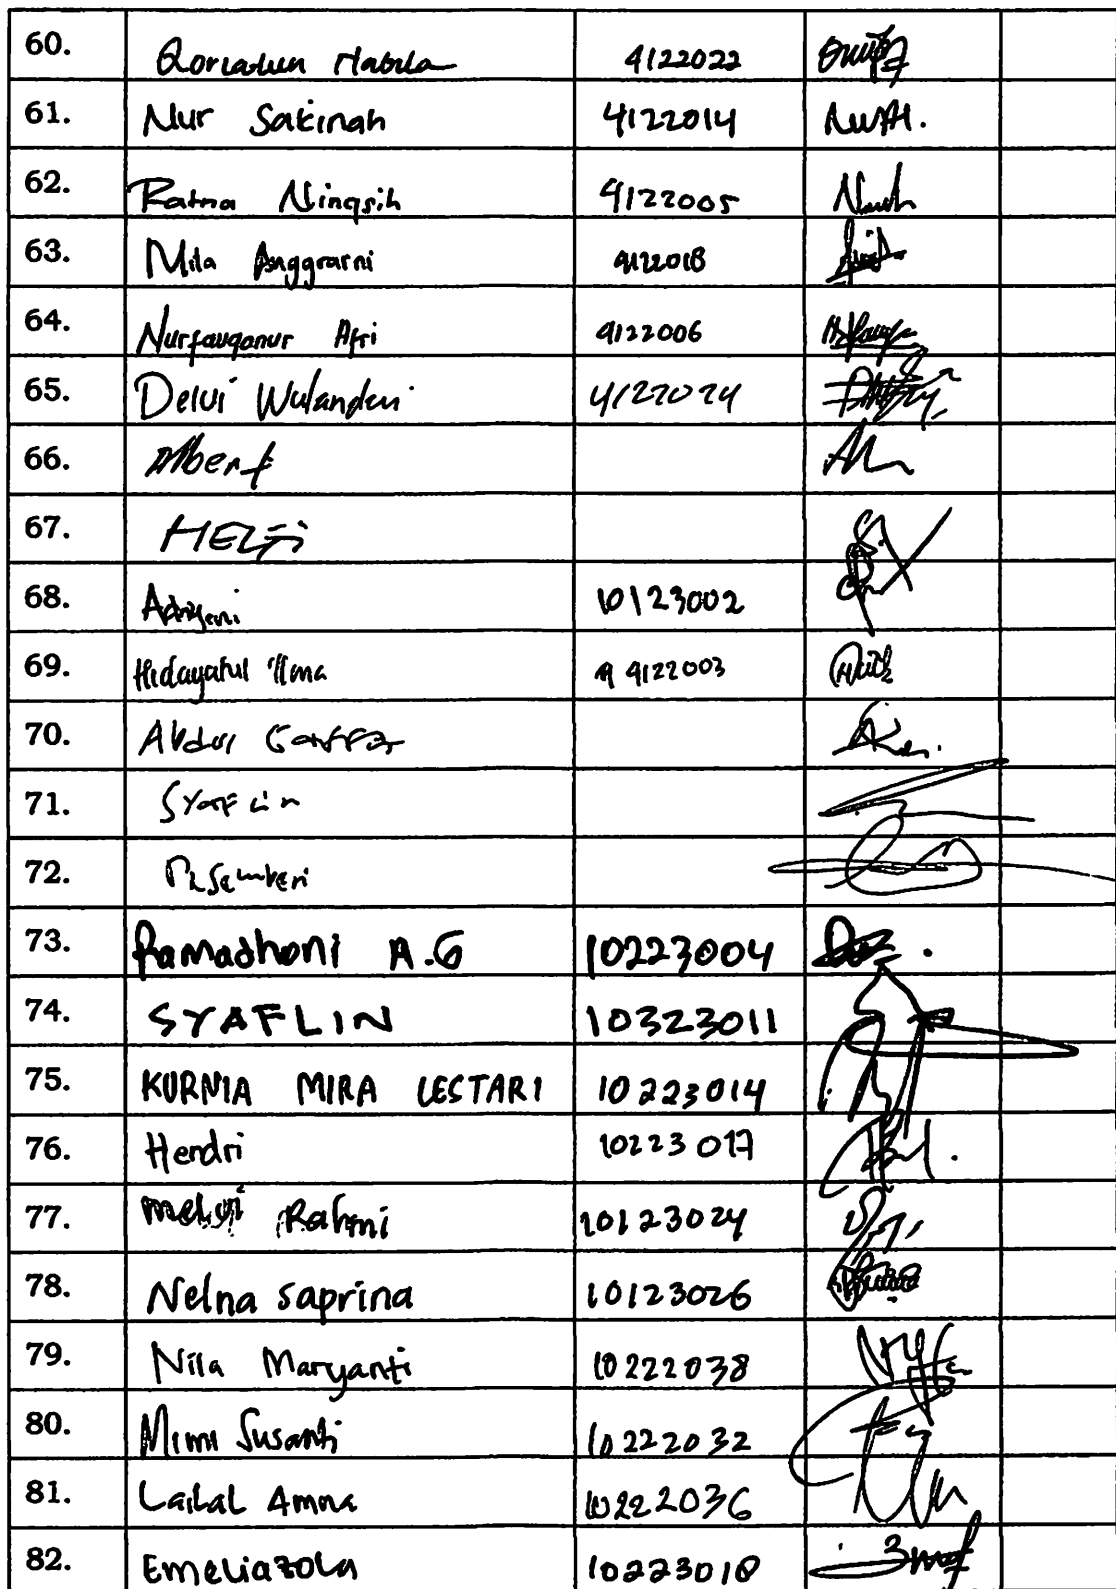 60. Qoriatun Nabila 4122022
61. Nur Sakinah 4122014
62. Ratna Ningsih 4122005
63. Mila Anggraini 4122018
64. Nurfauqanur Afri 4122006
65. Delvi Wulandari 4122024
66. Albert
67.
68. 10123002
69. Hidayatul Ilma 4122003
70. Abdul Gaffar
71. Syaflin
72.
73. Ramadhoni A.G 10223004
74. SYAFLIN 10323011
75. KURNIA MIRA LESTARI 10223014
76. Hendri 10223017
77. Melvi Rahmi 10123024
78. Nelna saprina 10123026
79. Nila Maryanti 10222038
80. Mimi Susanti 10222032
81. Lailal Amna 10222036
82. Emeliazola 10223018